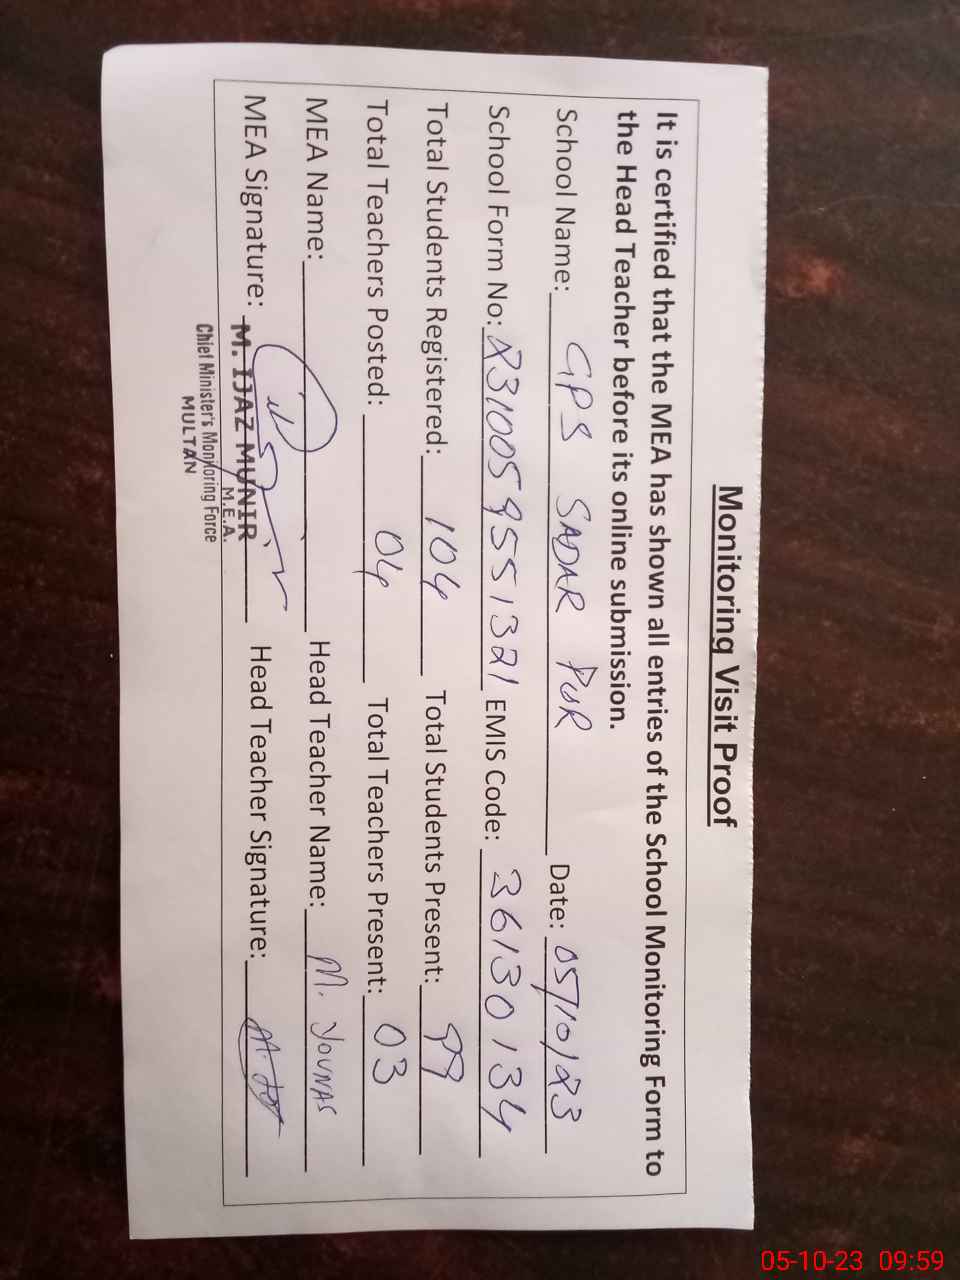 Monitoring Visit Proof
It is certified that the MEA has shown all entries of the School Monitoring Form to
the Head Teacher before its online submission.
School Name: GPS SADAR PUR Date: 05/10/23
School Form No: EMIS Code: 36130134
Total Students Registered: 104 Total Students Present: 99
Total Teachers Posted: 04 Total Teachers Present: 03
MEA Name: Head Teacher Name: M. YOUNAS
MEA Signature: Head Teacher Signature:
M. IJAZ MUNIR
M.E.A.
Chief Minister's Monitoring Force
MULTAN
05-10-23 09:59